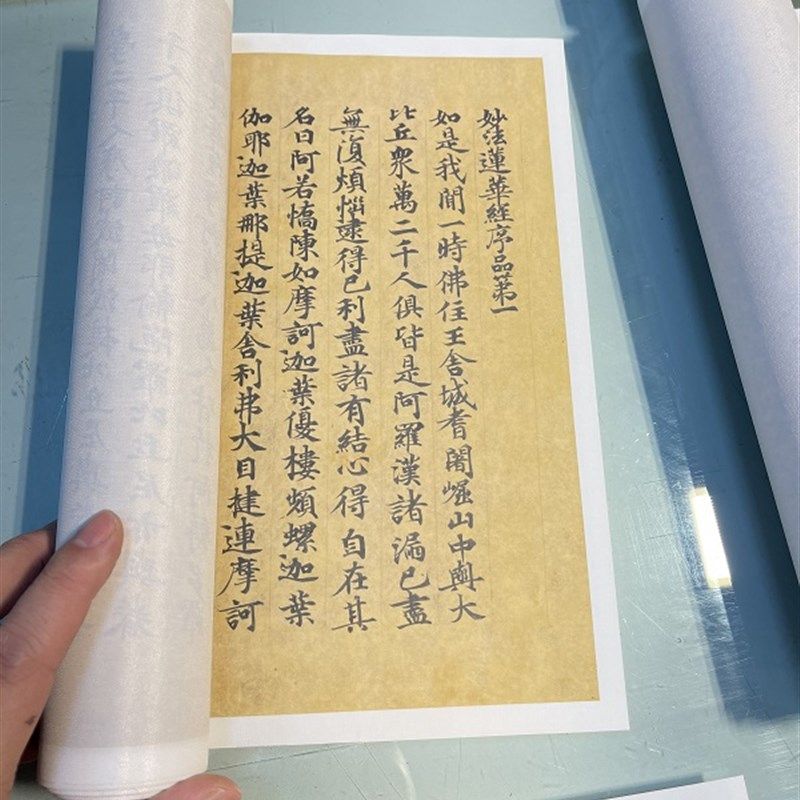 妙法蓮華經序品第一
如是我聞一時佛住王舍城耆闍崛山中與大
比丘衆萬二千人俱皆是阿羅漢諸漏已盡
無復煩惱逮得己利盡諸有結心得自在其
名曰阿若憍陳如摩訶迦葉優樓頻螺迦葉
伽耶迦葉那提迦葉舍利弗大目揵連摩訶